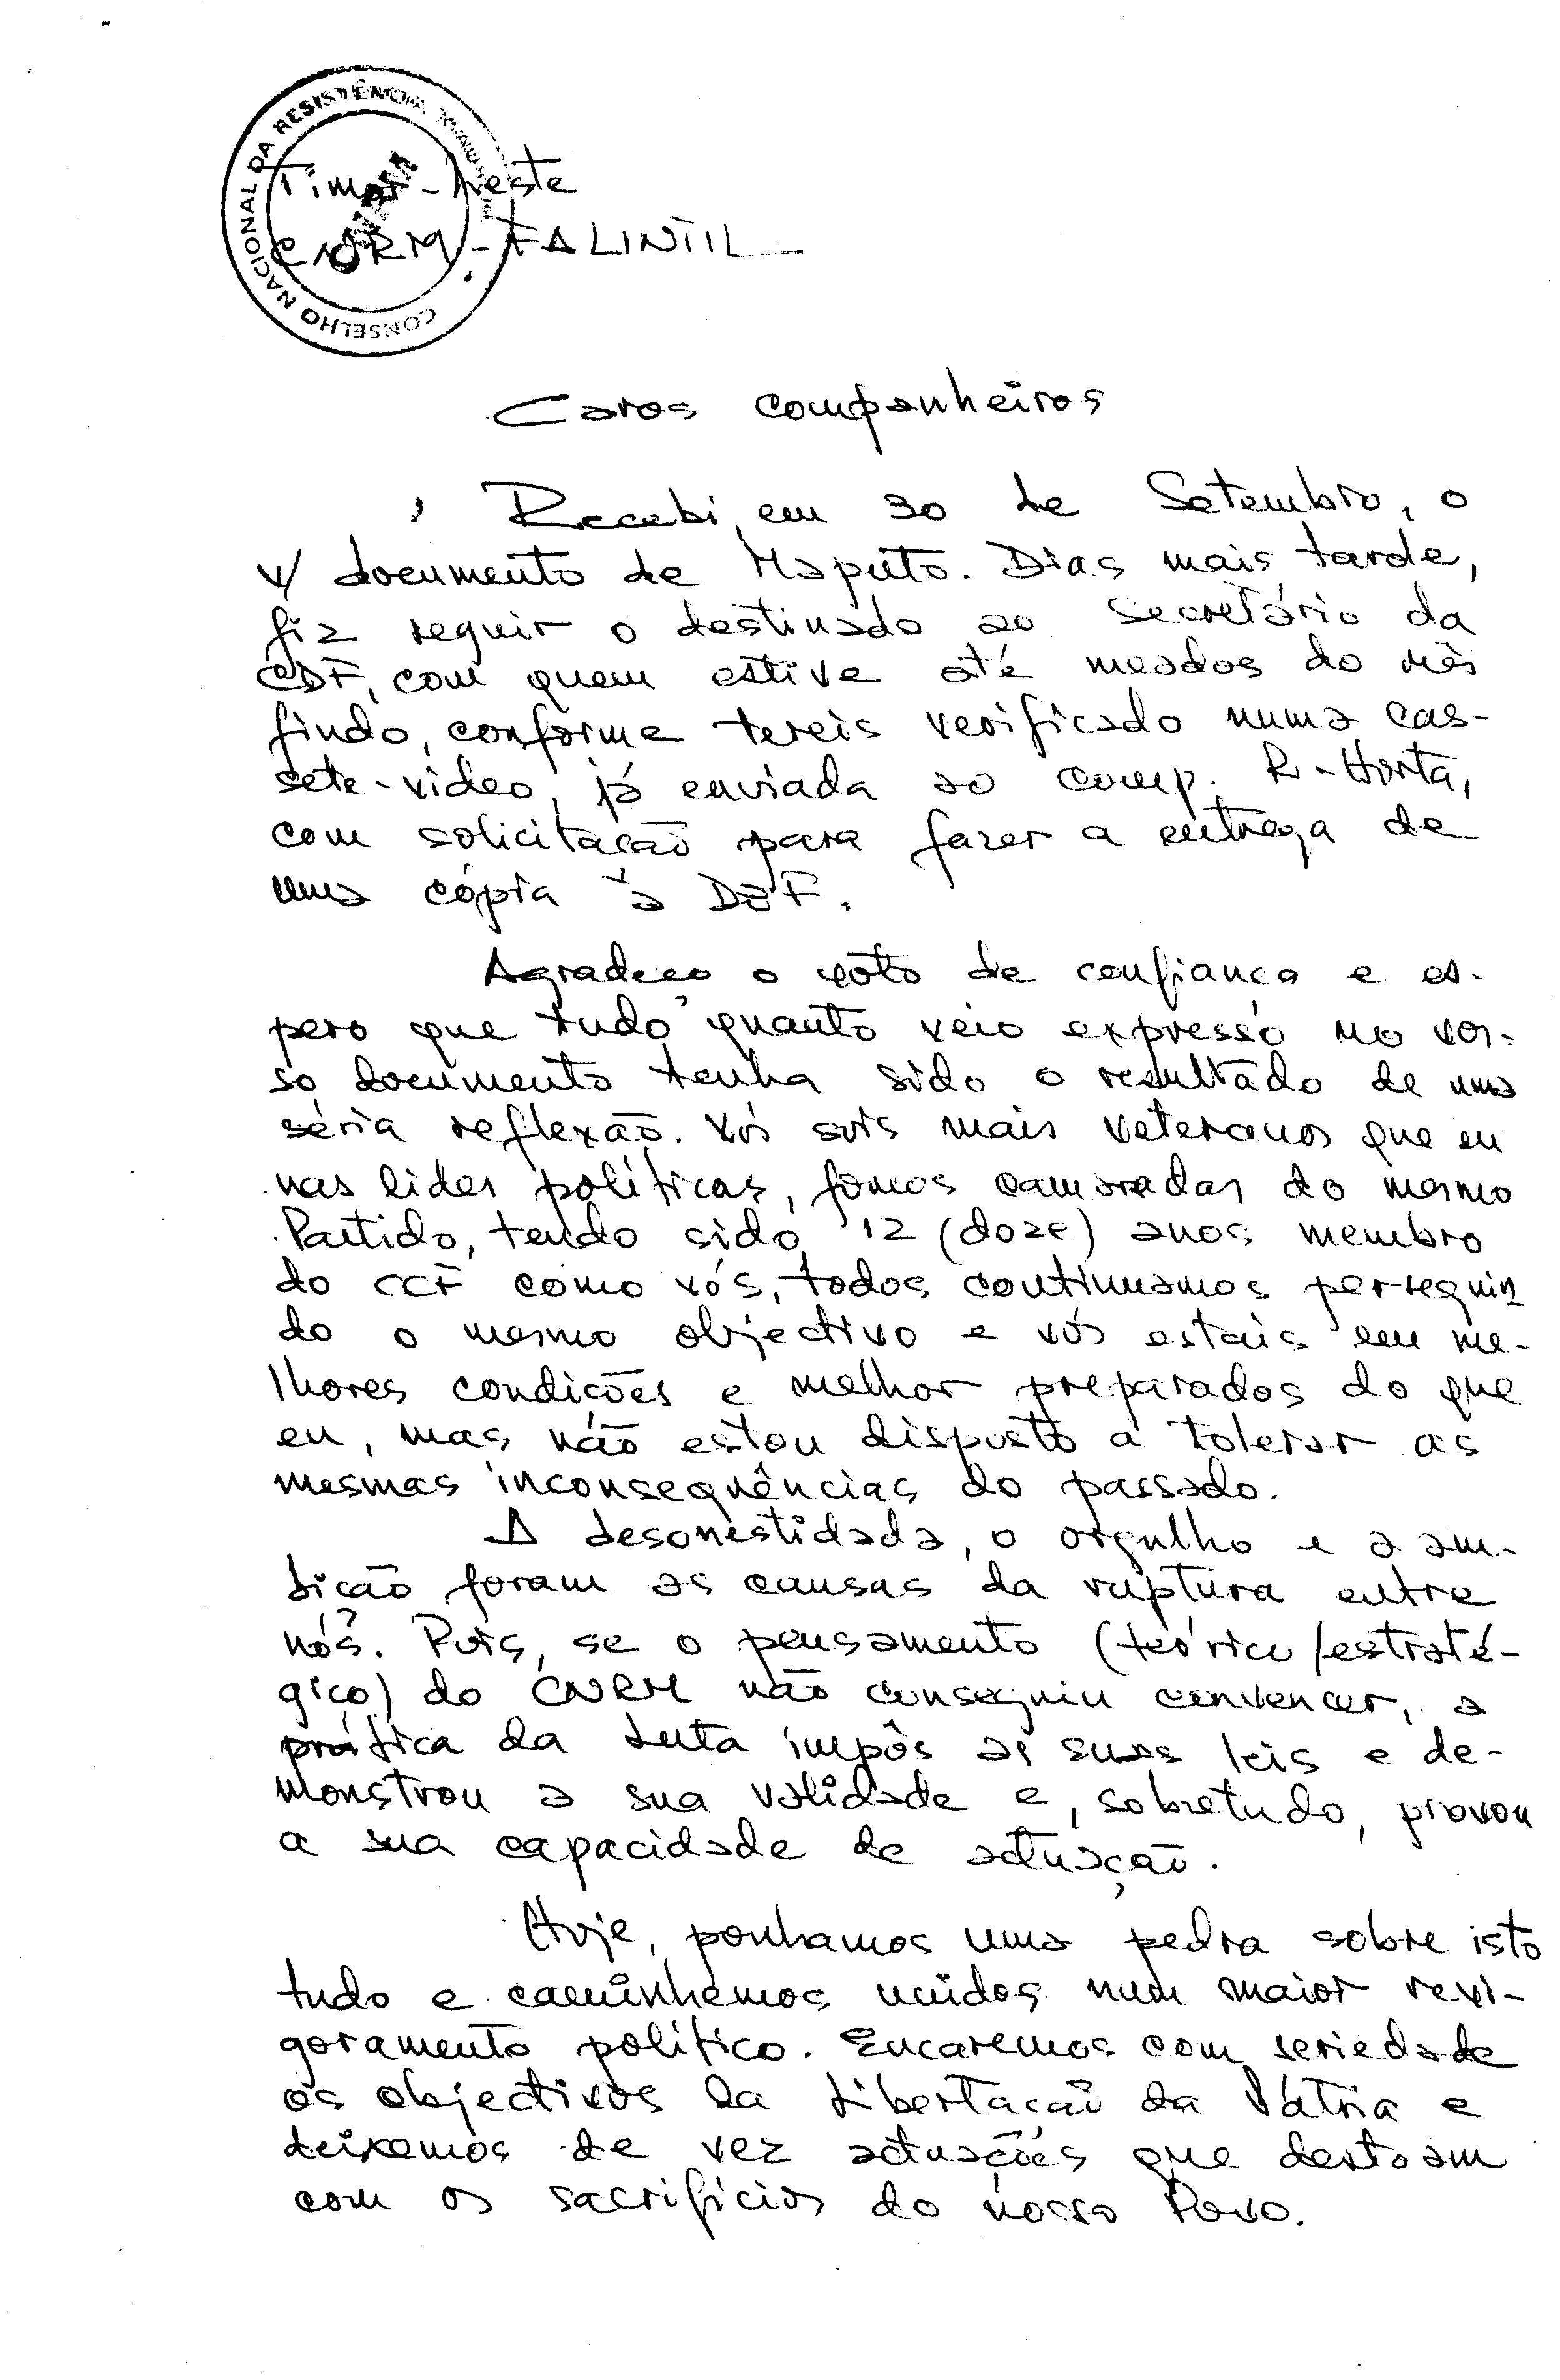 CONSELHO NACIONAL DA RESISTÊNCIA
Timor-Leste
CNRM-FALINTIL
Caros companheiros
Recebi, em 30 de Setembro, o
v/ documento de Maputo. Dias mais tarde,
fiz seguir o destinado ao Secretário da
CDF, com quem estive até meados do mês
findo, conforme tereis verificado numa cas-
sete-video, já enviada ao comp. R-Horta,
com solicitação para fazer a entrega de
uma cópia à DEF.
Agradeço o voto de confiança e es-
pero que tudo quanto veio expresso no vos-
so documento tenha sido o resultado de uma
séria reflexão. Vós sois mais veteranos que eu
nas lides políticas, fomos camaradas do mesmo
Partido, tendo sido 12 (doze) anos membro
do CCF como vós, todos continuamos perseguin
do o mesmo objectivo e vós estais em me-
lhores condições e melhor preparados do que
eu, mas não estou disposto a tolerar as
mesmas inconsequências do passado.
A desonestidade, o orgulho e a am-
bição foram as causas da ruptura entre
nós. Pois, se o pensamento (teórico/estraté-
gico) do CNRM não conseguiu convencer, a
prática da Luta impôs as suas leis e de-
monstrou a sua validade e, sobretudo, provou
a sua capacidade de actuação.
Hoje, ponhamos uma pedra sobre isto
tudo e caminhemos unidos num maior revi-
goramento político. Encaremos com seriedade
os objectivos da Libertação da Pátria e
deixemos de vez actuações que destoam
com os sacrifícios do nosso Povo.